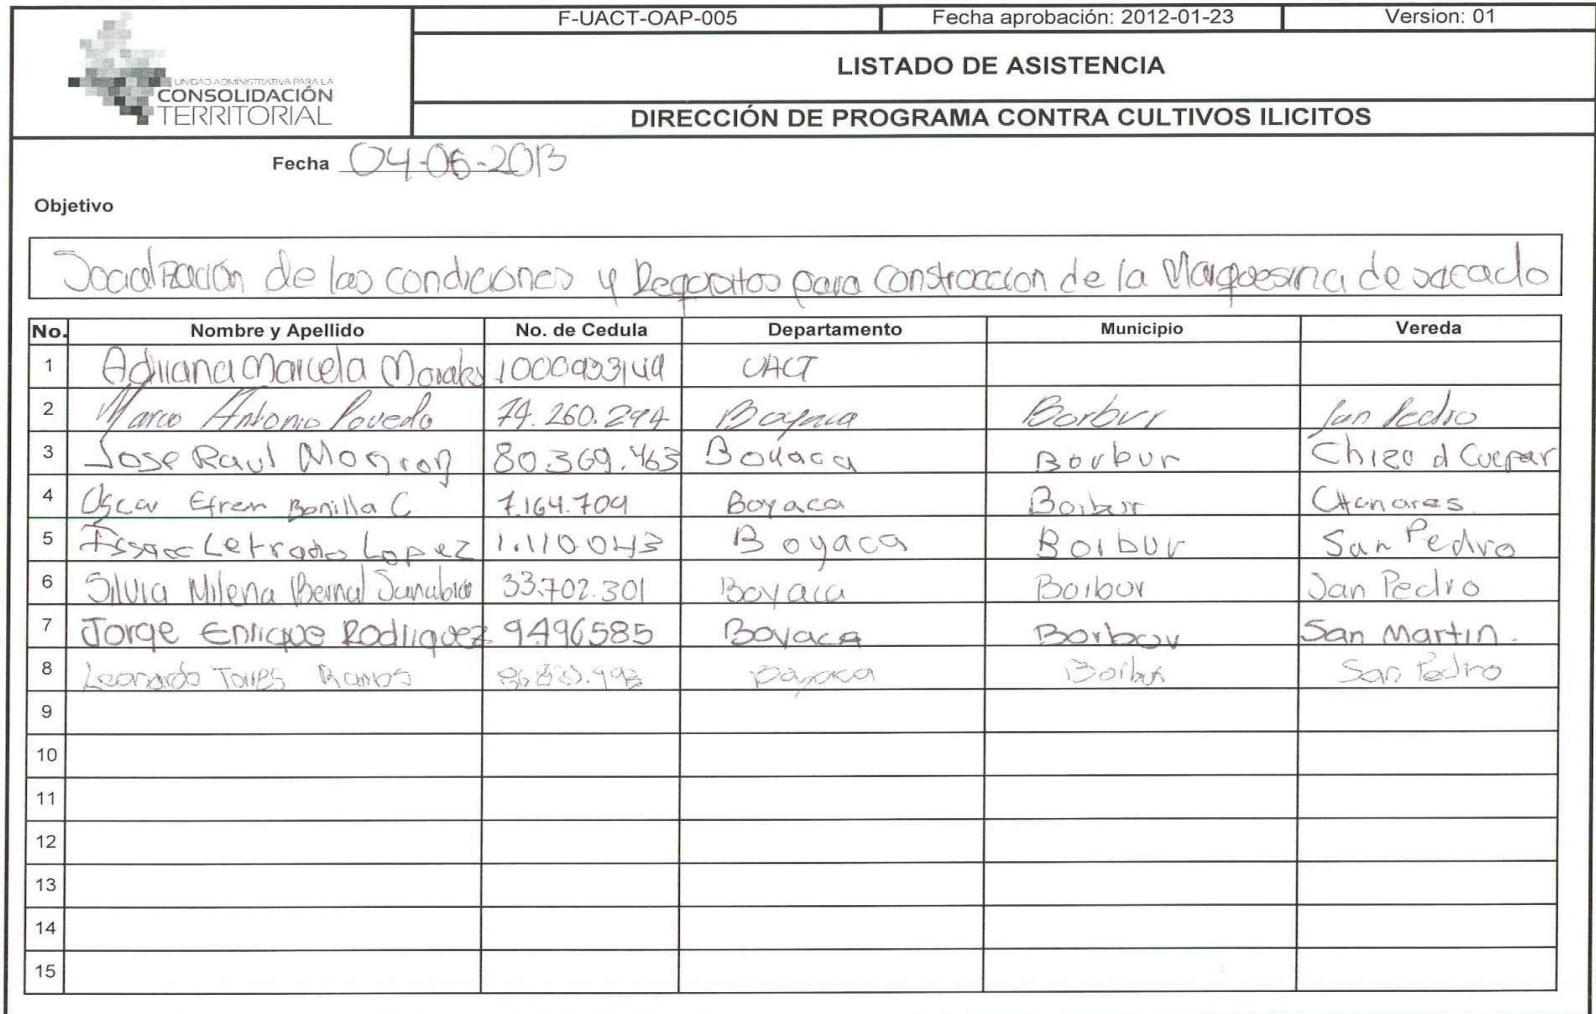 F-UACT-OAP-005 Fecha aprobación: 2012-01-23 Version: 01
UNIDAD ADMINISTRATIVA PARA LA
CONSOLIDACIÓN
TERRITORIAL
LISTADO DE ASISTENCIA
DIRECCIÓN DE PROGRAMA CONTRA CULTIVOS ILICITOS
Fecha 04-06-2013
Objetivo
Socialización de las condiciones y Requisitos para construccion de la Marquesina de secado
No. Nombre y Apellido No. de Cedula Departamento Municipio Vereda
1 Adriana Marcela Morales UACT
2 Marco Antonio Poveda 74.260.294 Boyaca Borbur San Pedro
3 Jose Raul Monroy 80.369.463 Boyaca Borbur Chizo d Cuepar
4 Oscar Efren Bonilla C 7.164.709 Boyaca Borbur
5 Issac Letrado Lopez 1.110.043 Boyaca Borbur San Pedro
6 Silvia Milena Bernal Sanabria 33.702.301 Boyaca Borbur San Pedro
7 Jorge Enrique Rodriguez 9496585 Boyaca Borbur San Martin.
8 Leonardo Torres Ramos Boyaca Borbur San Pedro
9
10
11
12
13
14
15